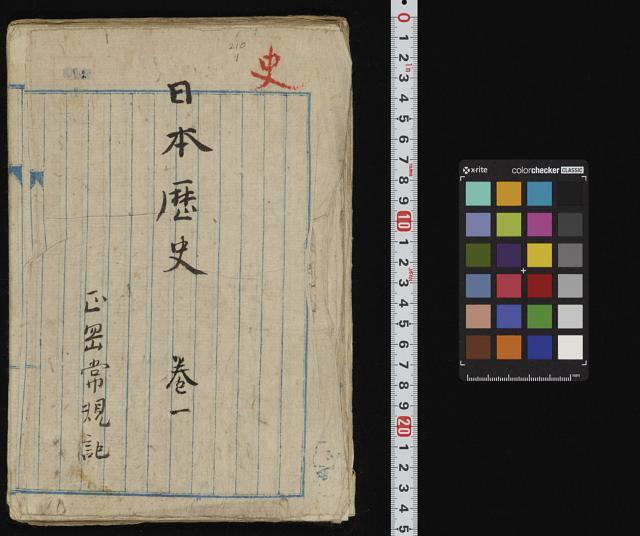 史
日本歴史 巻一
正岡常規記
210
1
0 1 2 3 4 5 6 7 8 9 10 1 2 3 4 5 6 7 8 9 20 1 2 3 4 5
x-rite
colorchecker CLASSIC
mm